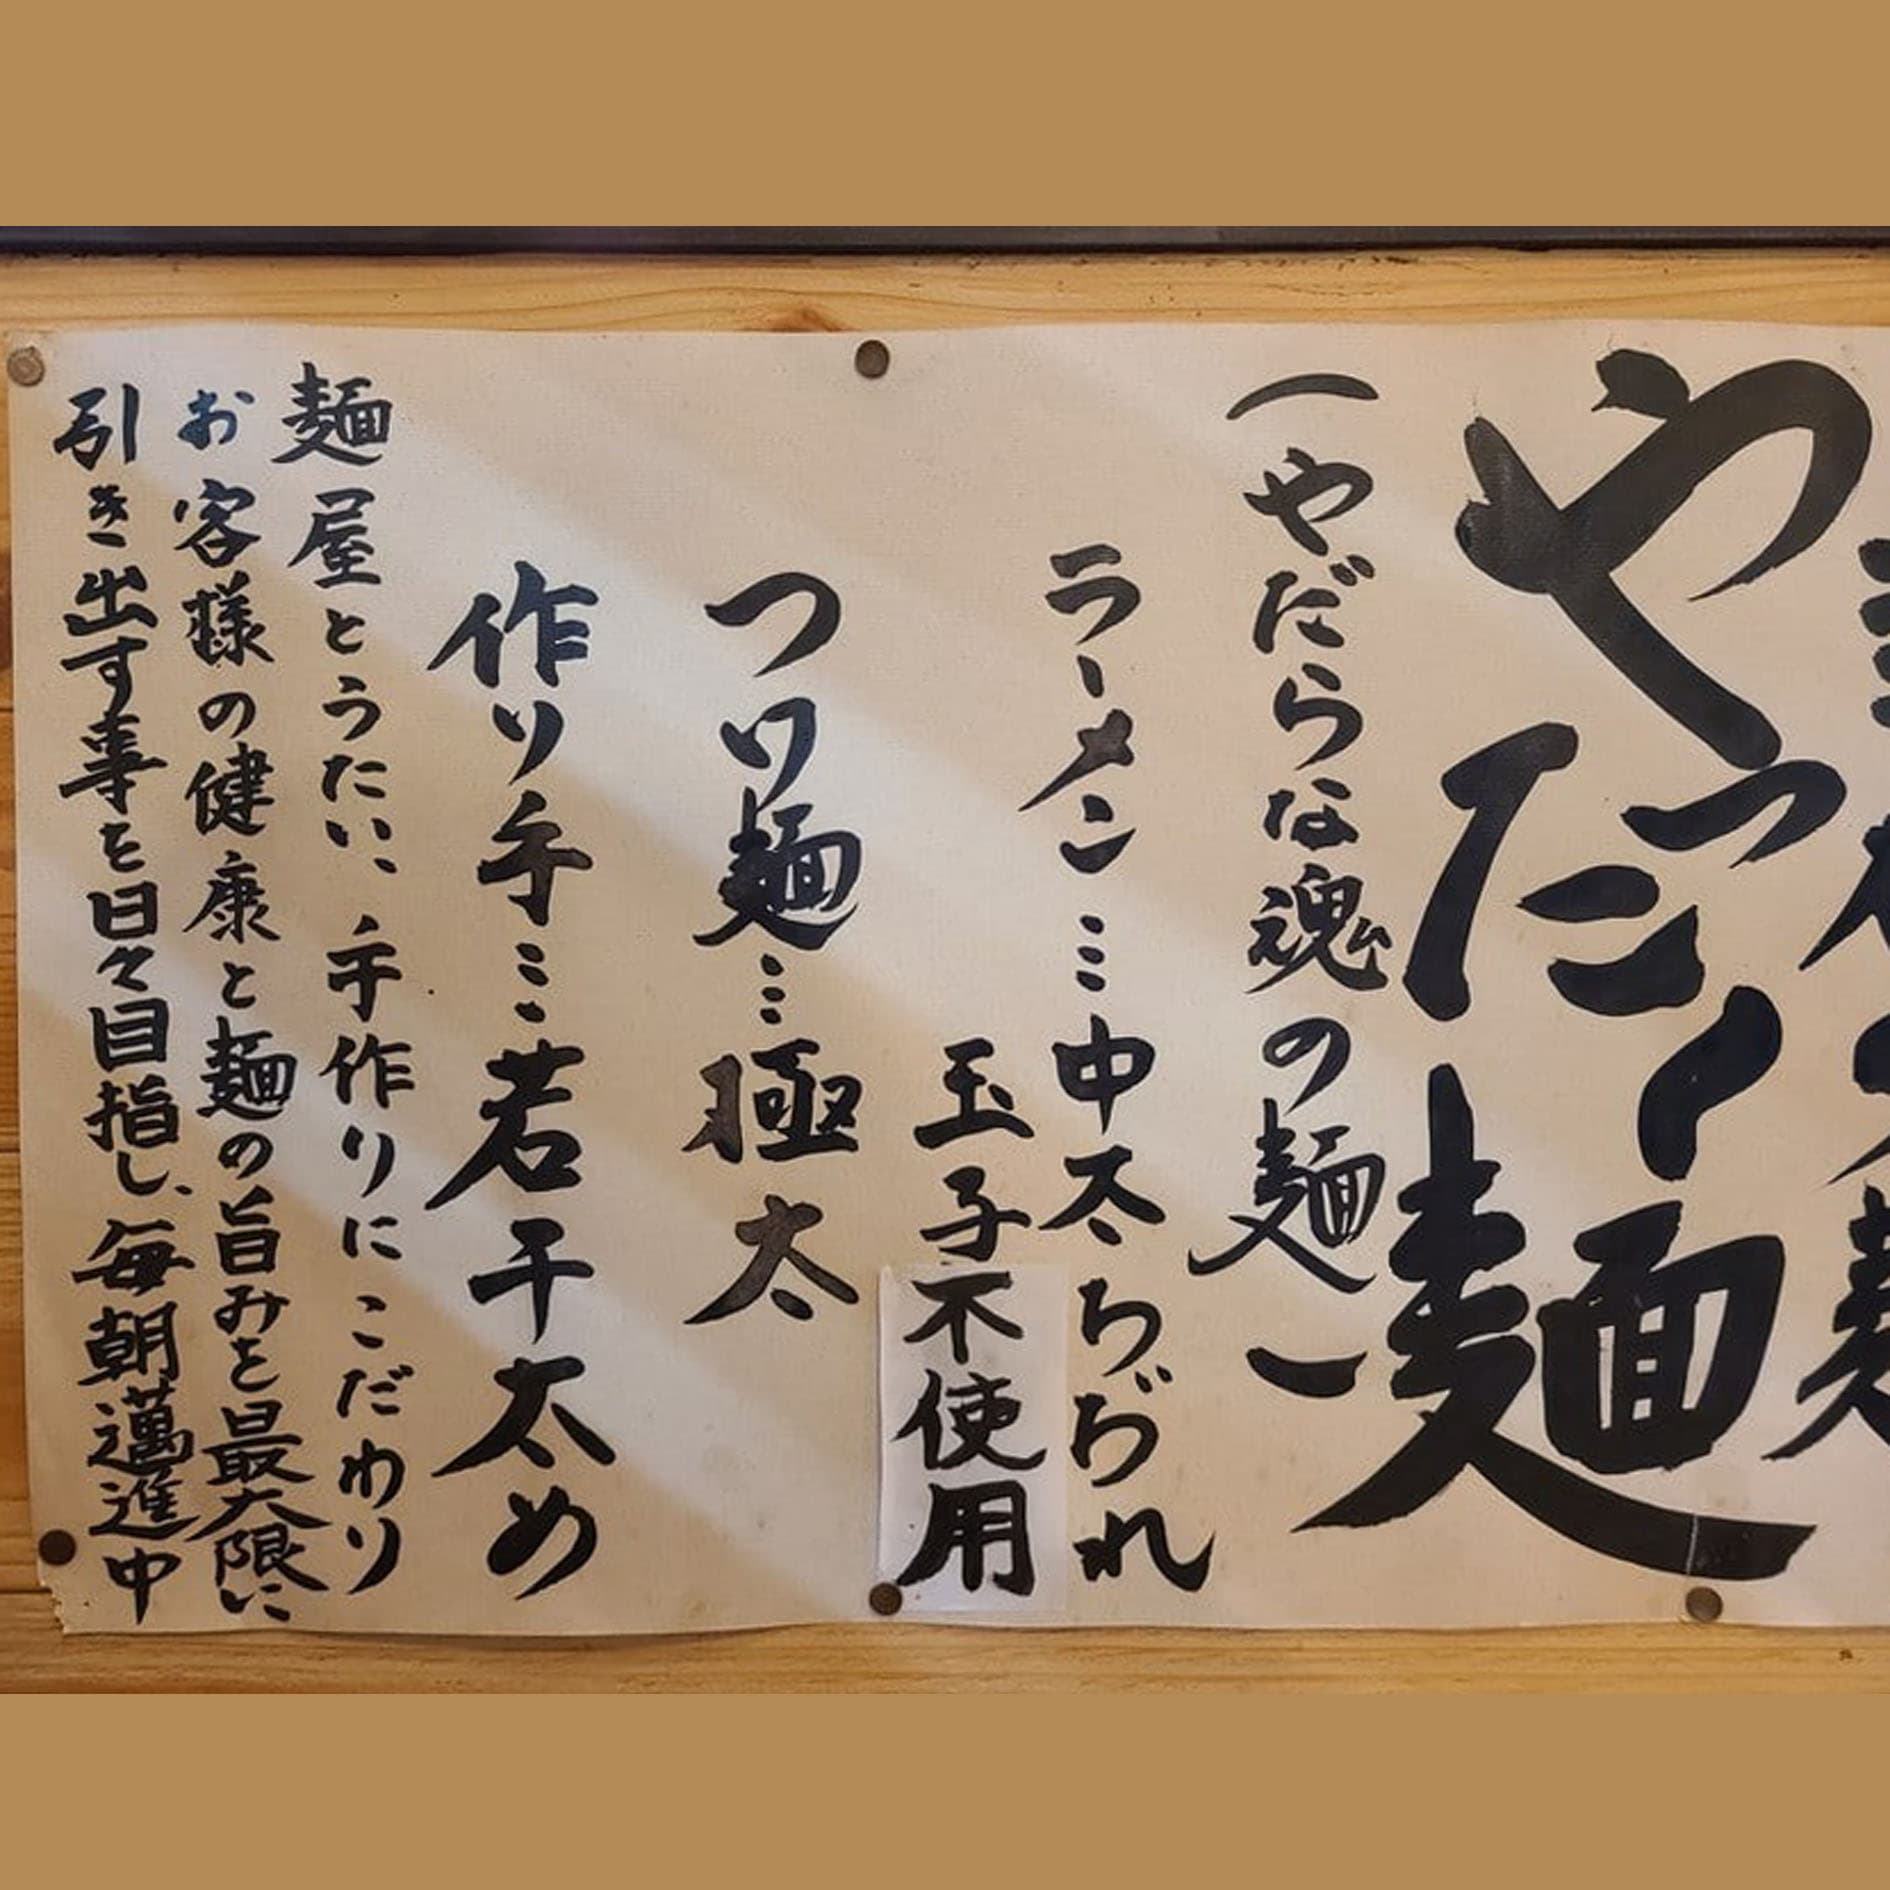 やったり麺
一やだらな魂の麺一
ラーメン…中太ちぢれ
玉子不使用
つけ麺…極太
作り手…若干太め
麺屋とうたい、手作りにこだわり
お客様の健康と麺の旨みを最大限に
引き出す事を日々目指し、毎朝邁進中